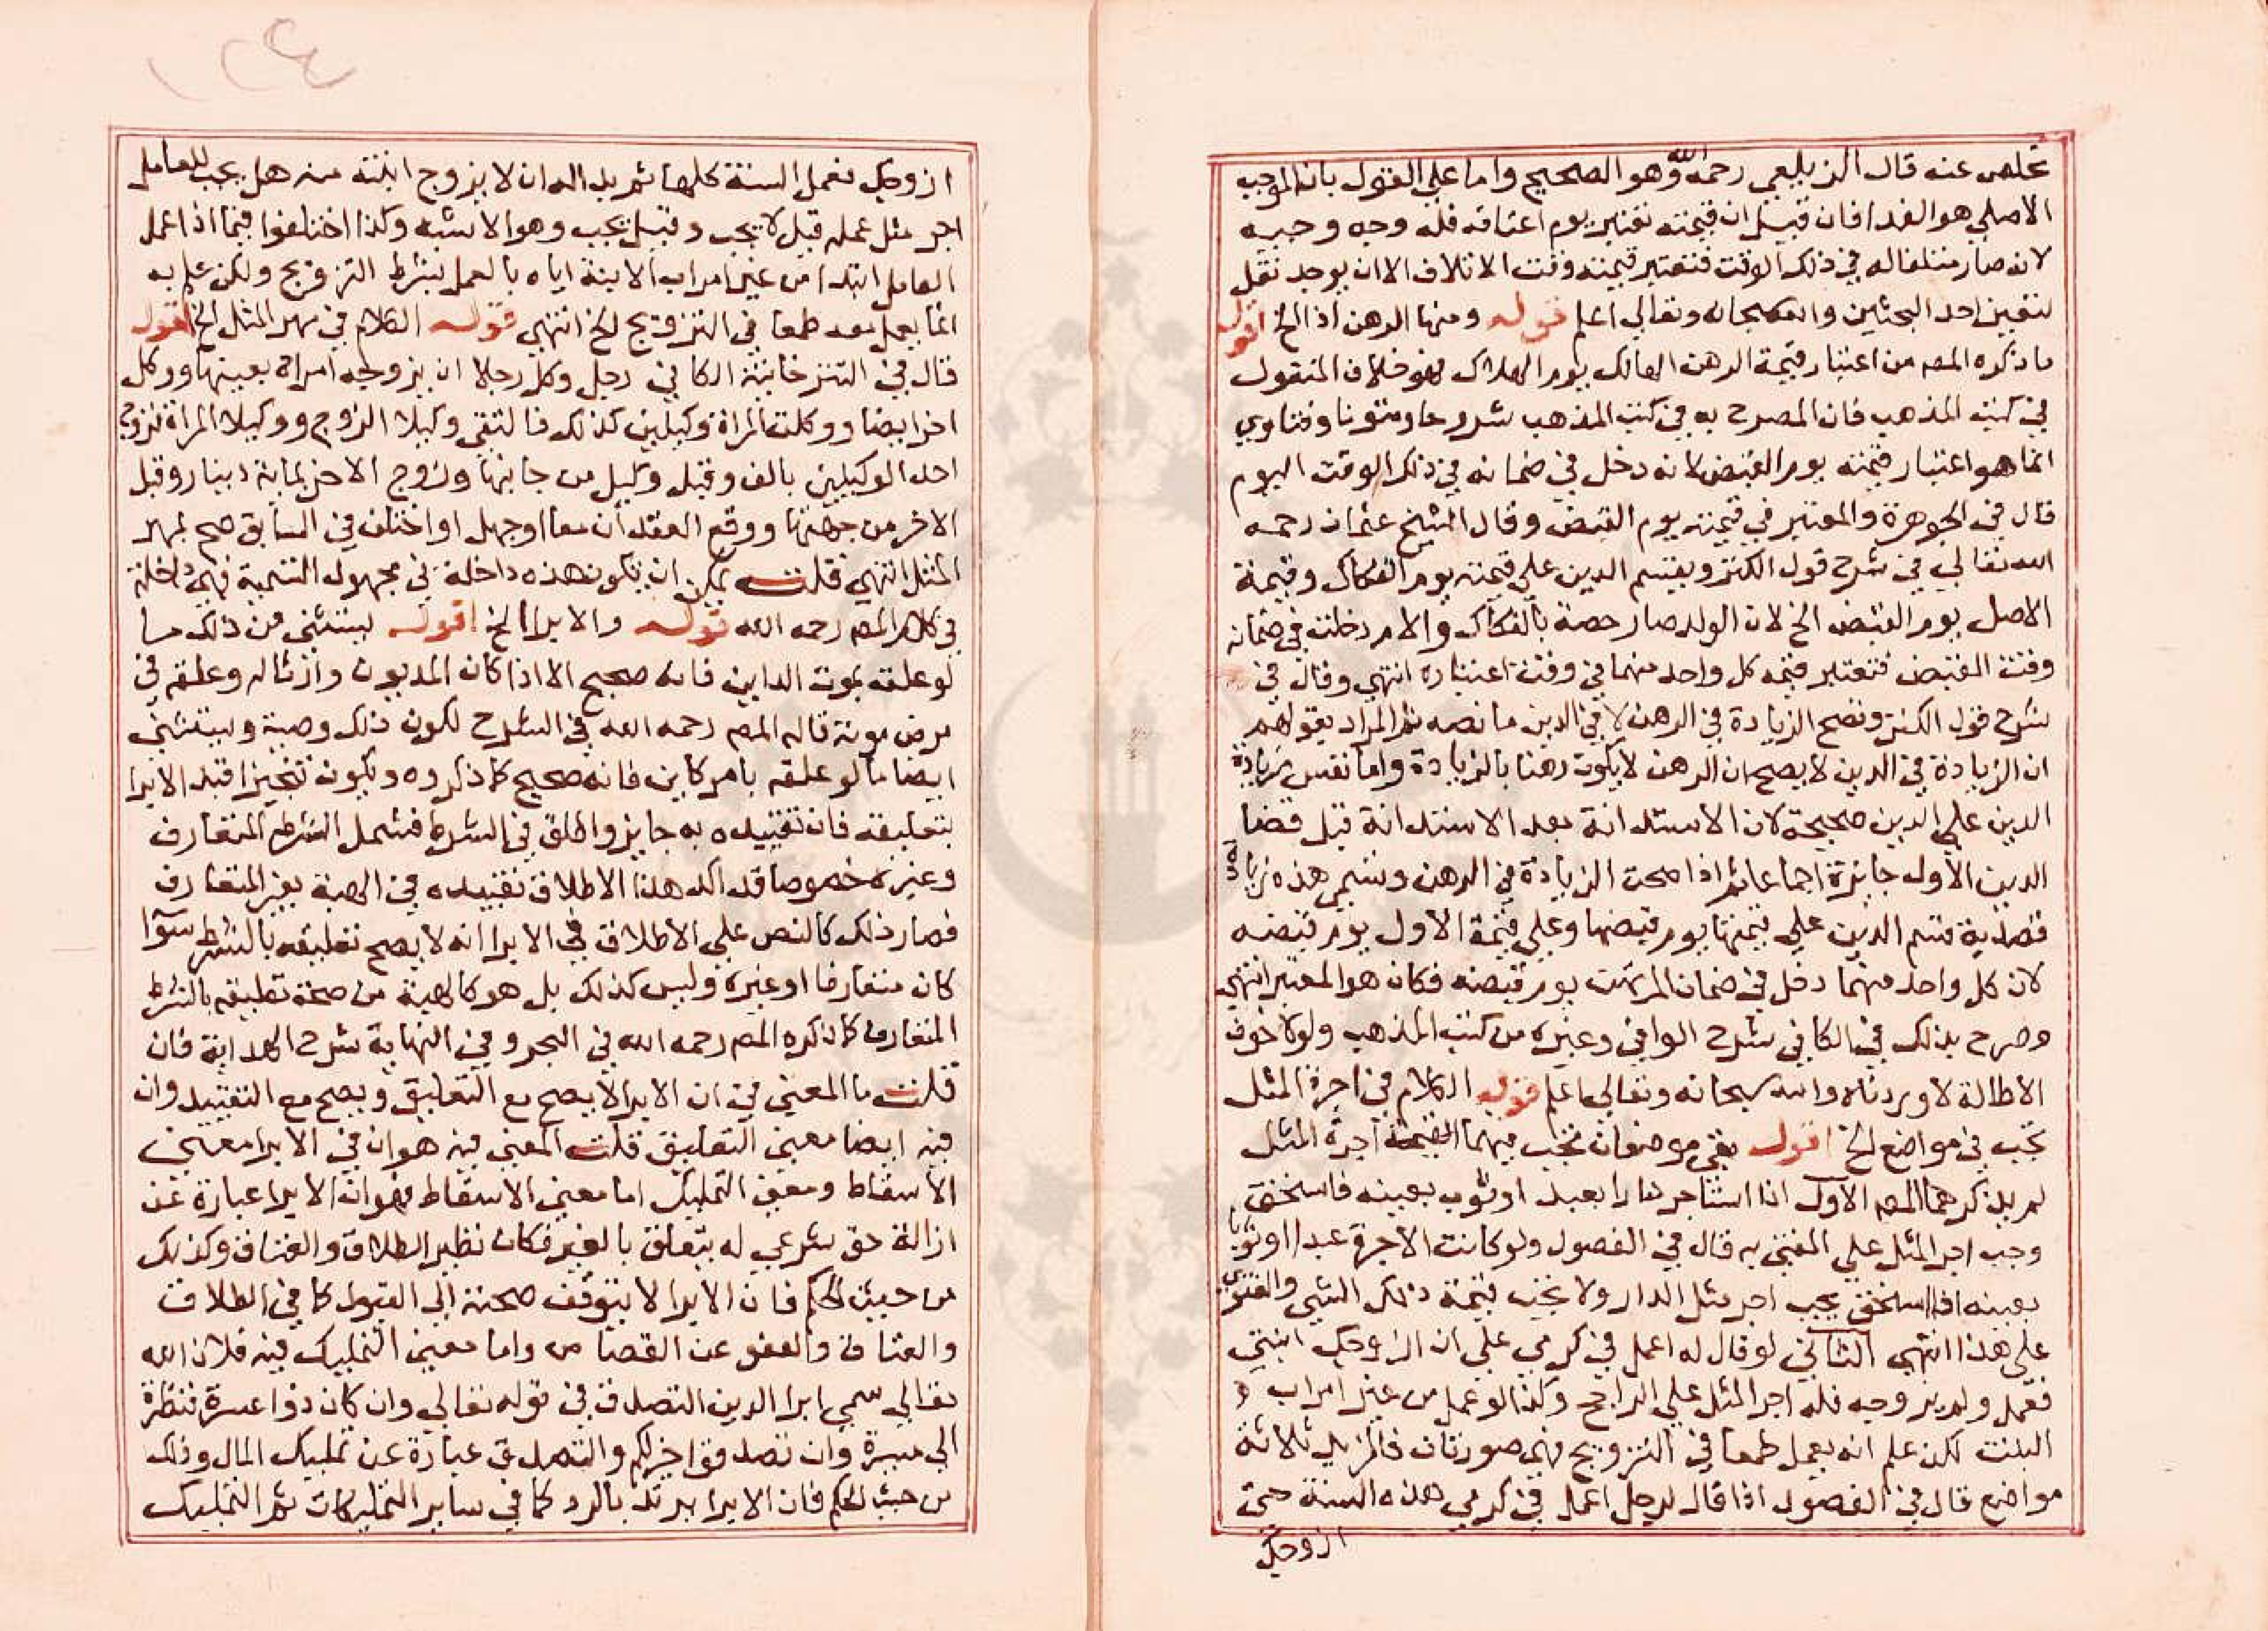 تخلص عنه قال الزيلعي رحمه الله وهو الصحيح واما علي القول بان الموجب
الاصلي هو الفدا فان قيل ان قيمته تعتبر يوم اعتاقه فله وجه وجيه
لانه صار متلفا له في ذلك الوقت فتعتبر قيمته وقت الاتلاف الا ان يوجد نقل
بتعين احد البحثين والله سبحانه وتعالي اعلم قوله ومنها الرهن اذ الخ اقول
ما ذكره المص من اعتبار قيمة الرهن الهالك يوم الهلاك فهو خلاف المنقول
في كتب المذهب فان المصرح به في كتب المذهب شروحا ومتونا وفتاوي
انما هو اعتبار قيمته يوم القبض لانه دخل في ضمانه في ذلك الوقت اليوم
قال في الجوهرة والمعتبر في قيمته يوم القبض وقال الشيخ عثمان رحمه
الله تعالي في شرح قول الكنز ويقسم الدين علي قيمته يوم الفكاك وقيمة
الاصل يوم القبض الخ لان الولد صار حصة بالفكاك والام دخلت في ضمانه
وقت القبض فتعتبر قيمة كل واحد منهما في وقت اعتباره انتهي وقال في
شرح قول الكنز وتصح الزيادة في الرهن لا في الدين ما نصه ثم المراد بقولهم
ان الزيادة في الدين لا يصح ان الرهن لا يكون رهنا بالزيادة واما نفس زيادة
الدين علي الدين صحيحة لان الاستدانة بعد الاستدانة قبل قضا
الدين الاول جايزة اجماعا ثم اذا صحت الزيادة في الرهن وتسمي هذه زيادة
قصدية قسم الدين علي قيمتها يوم قبضها وعلي قيمة الاول يوم قبضه
لان كل واحد منهما دخل في ضمان المرتهن يوم قبضه فكان هو المعتبر انتهي
وصرح بذلك في الكافي شرح الوافي وغيره من كتب المذهب ولولا خوف
الاطالة لاوردناه والله سبحانه وتعالي اعلم قوله الكلام في اجرة المثل
تجب في مواضع الخ اقول بقي موضعان تجب فيهما اجرة المثل
لم يذكرهما المص الاول اذا استاجر دارا بعبد او ثوب بعينه فاستحق
وجب اجر المثل علي المفتي به قال في الفصول ولو كانت الاجرة عبدا او ثوبا
بعينه فاستحق يجب اجر مثل الدار ولا يجب قيمة ذلك الشي والفتوي
علي هذا انتهي الثاني لو قال له اعمل في كرمي علي ان ازوجك ابنتي
فعمل ولم يزوجه فله اجر المثل علي الراجح وكذا لو عمل من غير امر اب
البنت لكن علم انه يعمل طمعا في التزويج فهي صورتان فالمزيد ثلاثة
مواضع قال في الفصول اذا قال لرجل اعمل في كرمي هذه السنة حتي
ازوجك
ازوجك فعمل السنة كلها ثم بدا له ان لا يزوج ابنته منه هل يجب للعامل
اجر مثل عمله قيل لا يجب وقيل يجب وهو الاشبه وكذا اختلفوا فيما اذا عمل
العامل ابتدا من غير امر اب الابنة اياه بالعمل بشرط التزويج ولكن علم به
انما يعمل معه طمعا في التزويج الخ انتهي قوله الكلام في مهر المثل الخ اقول
قال في التترخانية الكافي رجل وكل رجلا ان يزوجه امراة بعينها ووكل
اخر ايضا ووكلت المراة وكيلين كذلك فالتقي وكيلا الزوج ووكيلا المراة فزوج
احد الوكيلين بالف وقبل وكيل من جانبها وزوج الاخر بماية دينار وقبل
الاخر من جهتها ووقع العقدان معا او جهل او اختلف في السابق صح بمهر
المثل انتهي قلت يمكن ان تكون هذه داخلة في مجهول التسمية فهي داخلة
في كلام المص رحمه الله قوله والابرا الخ اقول يستثني من ذلك ما
لو علقه بموت الداين فانه صحيح الا اذا كان المديون وارثا له وعلقه في
مرض موته قاله المص رحمه الله في الشرح لكون ذلك وصية ويستثني
ايضا ما لو علقه بامر كاين فانه صحيح كما ذكروه ويكون تنجيزا قيد الابرا
بتعليقه فان تقييده به جايز واطلق في الشرط فشمل الشرط المتعارف
وغيره خصوصا قد اكد هذا الاطلاق تقييده في الهبة بغير المتعارف
فصار ذلك كالنص علي الاطلاق في الابرا انه لا يصح تعليقه بالشرط سوا
كان متعارفا او غيره وليس كذلك بل هو كالهبة من صحة تعليقه بالشرط
المتعارف كما ذكره المص رحمه الله في البحر وفي النهاية شرح الهداية فان
قلت ما المعني في ان الابرا لا يصح مع التعليق ويصح مع التقييد وان
فيه ايضا معني التعليق قلت المعني فيه هو ان في الابرا معني
الاسقاط ومعني التمليك اما معني الاسقاط فهو ان الابرا عبارة عن
ازالة حق شرعي له يتعلق بالغير فكان نظير الطلاق والعتاق وكذلك
من حيث الحكم فان الابرا لا يتوقف صحته الي القبول كما في الطلاق
والعتاق والعفو عن القصاص واما معني التمليك فيه فلان الله
تعالي سمي ابرا الدين التصدق في قوله تعالي وان كان ذو عسرة فنظرة
الي ميسرة وان تصدقوا خير لكم والتصدق عبارة عن تمليك المال وذلك
من حيث الحكم فان الابرا يرتد بالرد كما في ساير التمليكات ثم التمليك